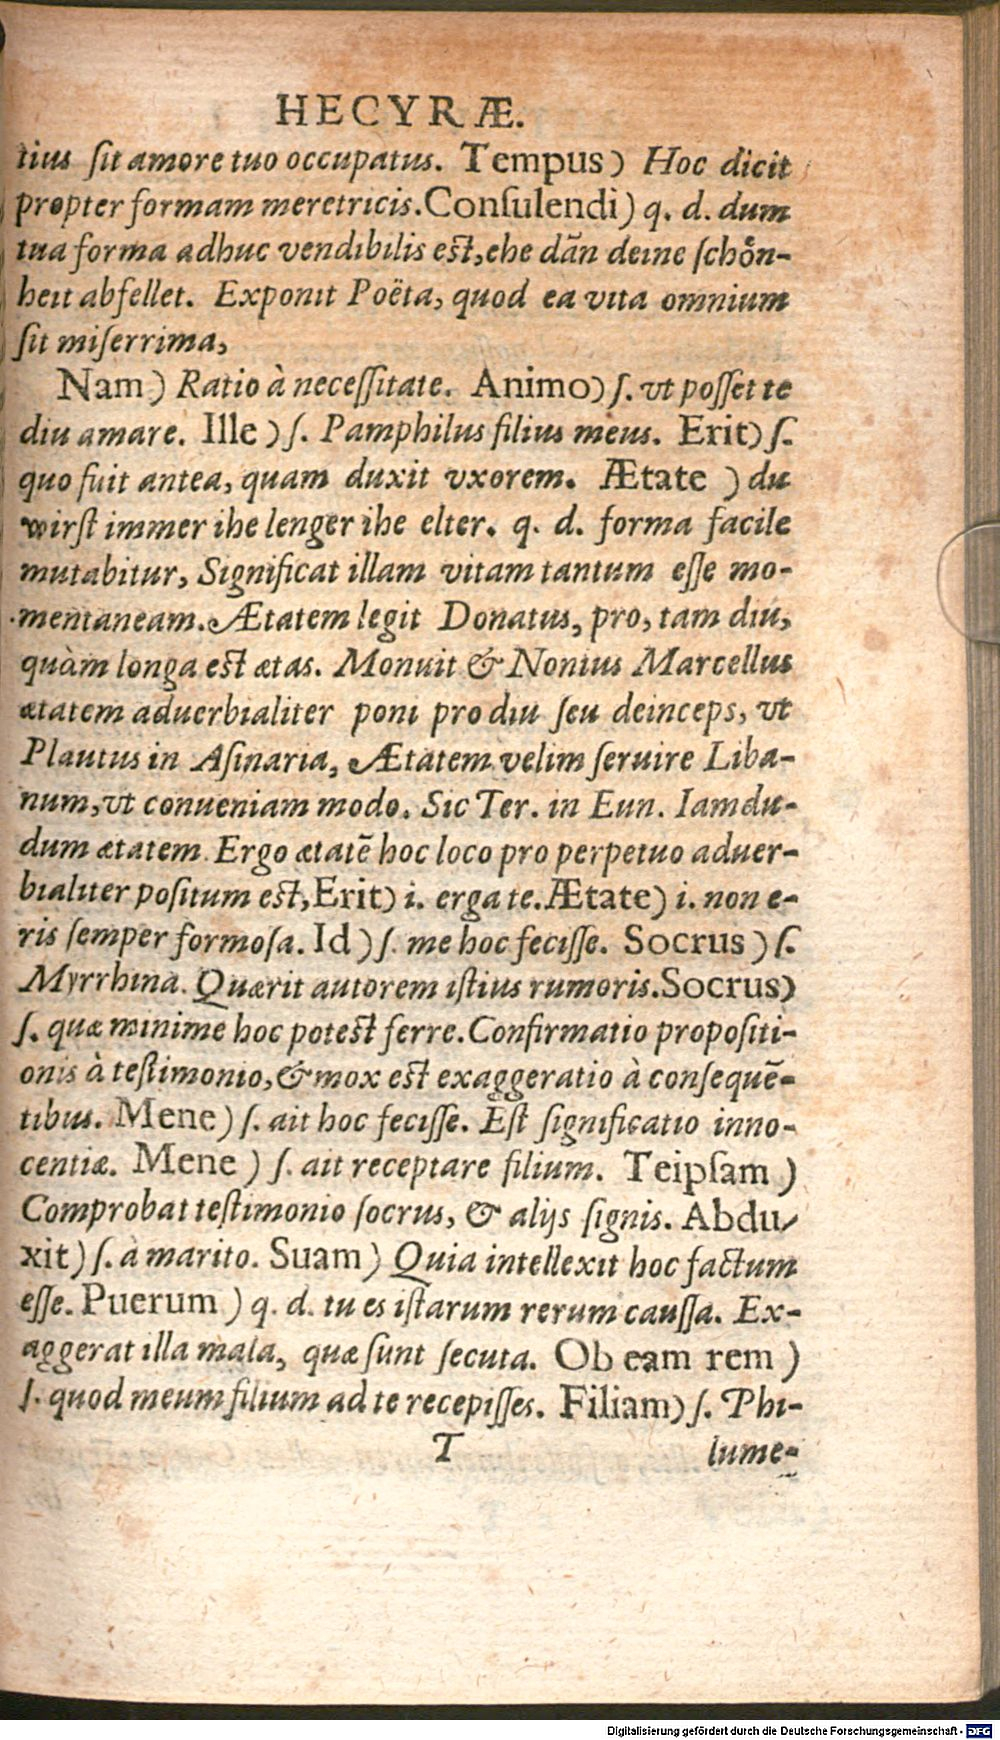 HECYRÆ.
tius ſit amore tuo occupatus. Tempus) Hoc dicit
propter formam meretricis. Conſulendi) q. d. dum
tua forma adhuc vendibilis est, ehe dãn deine ſchoͤn-
heit abfellet. Exponit Poëta, quod ea vita omnium
ſit miſerrima,
Nam) Ratio à neceſſitate. Animo) ſ. vt poſſet te
diu amare. Ille) ſ. Pamphilus filius meus. Erit) ſ.
quo fuit antea, quam duxit vxorem. Ætate) du
wirſt immer ihe lenger ihe elter. q. d. forma facile
mutabitur, Significat illam vitam tantum eſſe mo-
mentaneam. Ætatem legit Donatus, pro, tam diu,
quàm longa est ætas. Monuit & Nonius Marcellus
ætatem aduerbialiter poni pro diu ſeu deinceps, vt
Plautus in Aſinaria, Ætatem velim ſeruire Liba-
num, vt conueniam modo. Sic Ter. in Eun. Iamdu-
dum ætatem. Ergo ætatẽ hoc loco pro perpetuo aduer-
bialiter poſitum est, Erit) i. erga te. Ætate) i. non e-
ris ſemper formoſa. Id) ſ. me hoc feciſſe. Socrus) ſ.
Myrrhina. Quærit autorem iſtius rumoris. Socrus)
ſ. quæ minime hoc potest ferre. Confirmatio propoſiti-
onis à teſtimonio, & mox est exaggeratio à conſequẽ-
tibus. Mene) ſ. ait hoc feciſſe. Eſt ſignificatio inno-
centiæ. Mene) ſ. ait receptare filium. Teipſam)
Comprobat teſtimonio ſocrus, & alijs ſignis. Abdu-
xit) ſ. à marito. Suam) Quia intellexit hoc factum
eſſe. Puerum) q. d. tu es iſtarum rerum cauſſa. Ex-
aggerat illa mala, quæ ſunt ſecuta. Ob eam rem)
ſ. quod meum filium ad te recepiſſes. Filiam) ſ. Phi-
T lume-
Digitalisierung gefördert durch die Deutsche Forschungsgemeinschaft - DFG